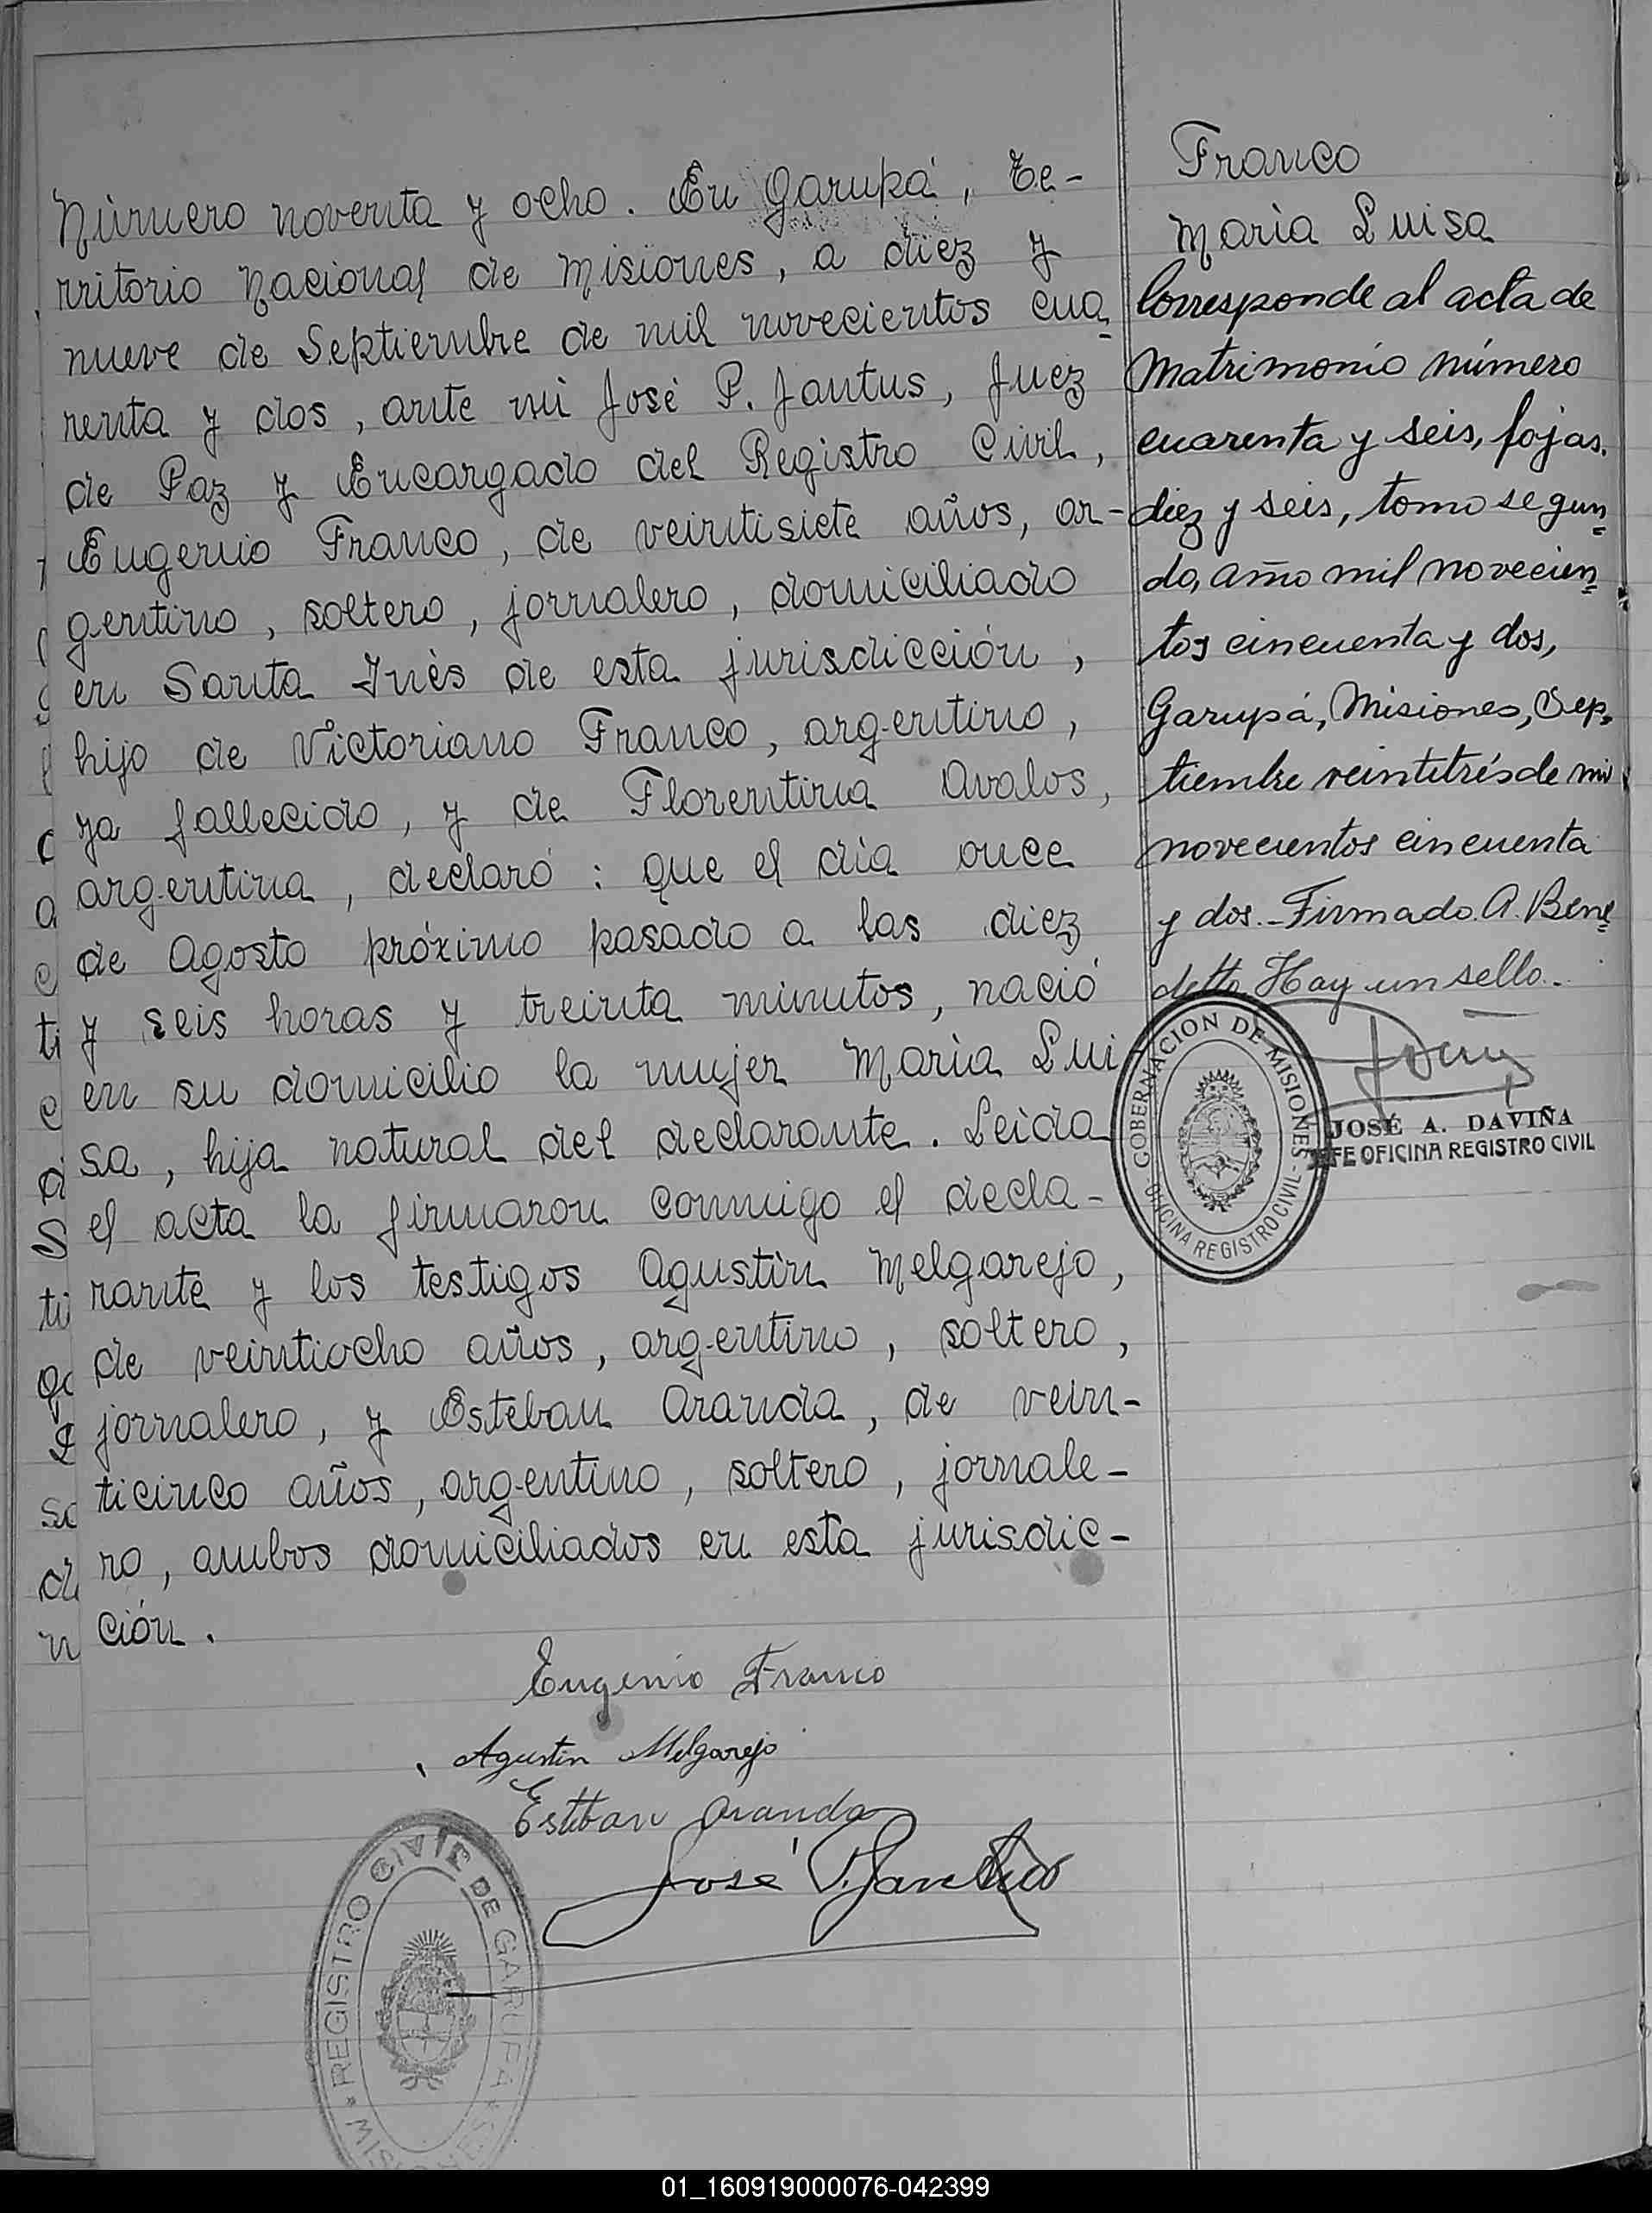 Número noventa y ocho. En Garupá, Te-
rritorio Nacional de Misiones, a diez y
nueve de Septiembre de mil novecientos cua-
renta y dos, ante mi José P. Jantus, Juez
de Paz y Encargado del Registro Civil,
Eugenio Franco, de veintisiete años, ar-
gentino, soltero, jornalero, domiciliado
en Santa Inés de esta jurisdicción,
hijo de Victoriano Franco, argentino,
ya fallecido, y de Florentina Avalos,
argentina, declaró: Que el día once
de Agosto próximo pasado a las diez
y seis horas y treinta minutos, nació
en su domicilio la mujer María Lui
sa, hija natural del declarante. Leida
el acta la firmaron conmigo el decla-
rante y los testigos Agustín Melgarejo,
de veintiocho años, argentino, soltero,
jornalero, y Esteban Aranda, de vein-
ticinco años, argentino, soltero, jornale-
ro, ambos domiciliados en esta jurisdic-
ción.
Eugenio Franco
Agustin Melgarejo
Esteban Aranda
José P. Jantus
REGISTRO CIVIL DE GARUPA
Franco
María Luisa
Corresponde al acta de
Matrimonio número
cuarenta y seis, fojas
diez y seis, tomo segun-
do, año mil novecien-
tos cincuenta y dos,
Garupá, Misiones, Sep-
tiembre veintitrés de mil
novecientos cincuenta
y dos.- Firmado. A. Bene-
detto. Hay un sello.-
GOBERNACION DE MISIONES
OFICINA REGISTRO CIVIL
JOSÉ A. DAVIÑA
JEFE OFICINA REGISTRO CIVIL
01_160919000076-042399